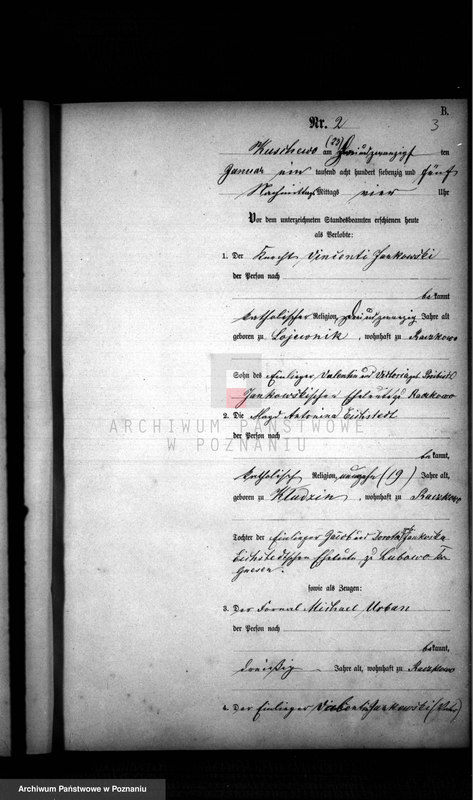 B.
3
Nr. 2
Kuschewo am (23) Dreiundzwanzigsten
Januar ein tausend acht hundert siebenzig und fünf
Nachmittags Mittags vier Uhr
Vor dem unterzeichneten Standesbeamten erschienen heute
als Verlobte:
1. Der Knecht Vincenti Jankowski
der Person nach
bekannt
katholischer Religion, Jahre alt
geboren zu Lojewnik, wohnhaft zu Raczkowo
Sohn des Einlieger Valentin und Viktoria geb.
Jankowskischen Eheleute zu Raczkowo
2. Die Magd Antonina Eichstedt
der Person nach
bekannt,
katholisch Religion, neunzehn (19) Jahre alt,
geboren zu Kludzin, wohnhaft zu Raczkowo
Tochter der Einlieger Jacob und Dorota Jankoska
Eichstedtschen Eheleute zu Lubowo Kr.
Gnesen.
sowie als Zeugen:
3. Der Fornal Michael Urban
der Person nach
bekannt,
dreißig Jahre alt, wohnhaft zu Raczkowo
4. Der Einlieger Valentin Jankowski (Vater)
ARCHIWUM PAŃSTWOWE
W POZNANIU
Archiwum Państwowe w Poznaniu